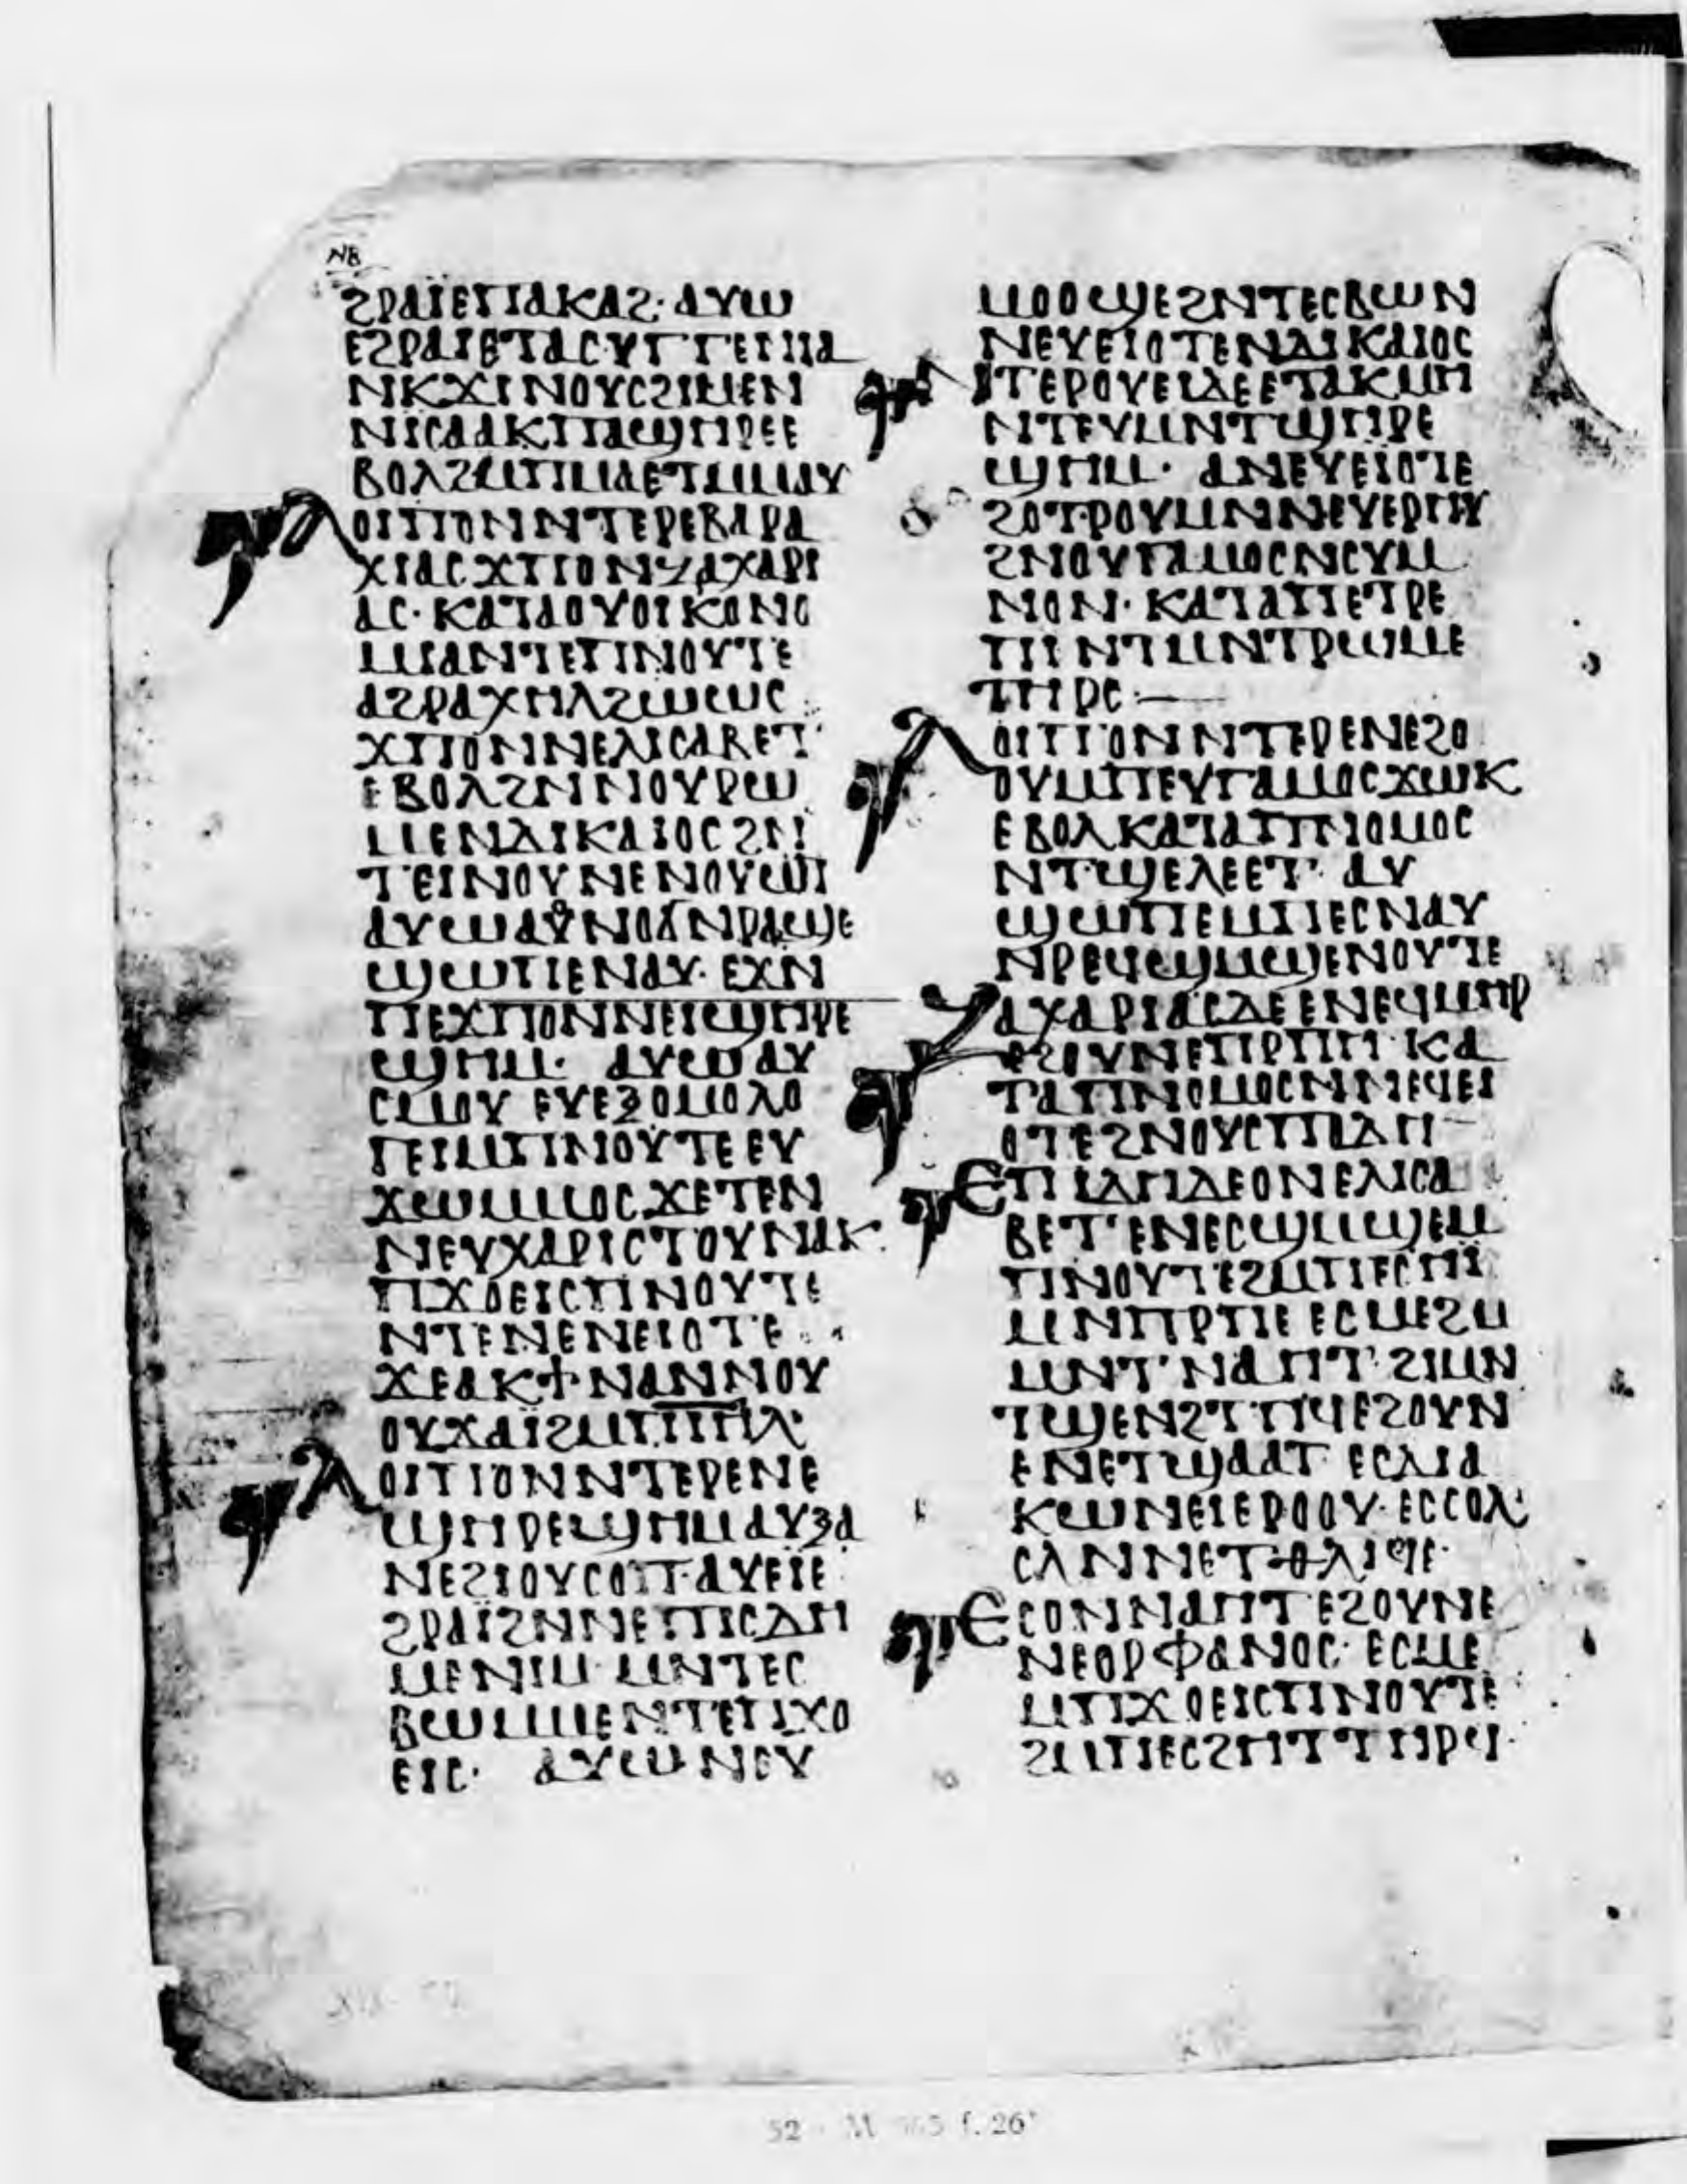 ⲛⲃ
ϩⲣⲁⲓ̈ⲉⲡⲁⲕⲁϩ· ⲁⲩⲱ
ⲉϩⲣⲁⲓⲉⲧⲁⲥⲩⲅⲅⲉⲛⲓⲁ
ⲛⲕϫⲓⲛⲟⲩⲥϩⲓⲙⲉⲛ
ⲛⲓⲥⲁⲁⲕⲡⲁϣⲏⲣⲉⲉ
ⲃⲟⲗϩⲙⲡⲙⲁⲉⲧⲙⲙⲁⲩ
ⲗⲟⲓⲡⲟⲛⲛⲧⲉⲣⲉⲃⲁⲣⲁ
ⲭⲓⲁⲥϫⲡⲟⲛⲍⲁⲭⲁⲣⲓ
ⲁⲥ· ⲕⲁⲧⲁⲟⲩⲟⲓⲕⲟⲛⲟ
ⲙⲓⲁⲛⲧⲉⲡⲛⲟⲩⲧⲉ
ⲁϩⲣⲁⲭⲏⲗϩⲱⲱⲥ
ϫⲡⲟⲛⲛⲉⲗⲓⲥⲁⲃⲉⲧ·
ⲉⲃⲟⲗϩⲛⲛⲟⲩⲣⲱ
ⲙⲉⲛⲇⲓⲕⲁⲓⲟⲥϩⲛ
ⲧⲉⲓⲛⲟⲩⲛⲉⲛⲟⲩⲱⲧ
ⲁⲩⲱⲁⲩⲛⲟϭⲛⲣⲁϣⲉ
ϣⲱⲡⲉⲛⲁⲩ· ⲉϫⲛ
ⲡⲉϫⲡⲟⲛⲛⲉⲓϣⲏⲣⲉ
ϣⲏⲙ· ⲁⲩⲱⲁⲩ
ⲥⲙⲟⲩ ⲉⲩⲉⲝⲟⲙⲟⲗⲟ
ⲅⲉⲓⲙⲡⲛⲟⲩⲧⲉ ⲉⲩ
ϫⲱⲙⲙⲟⲥ ϫⲉⲧⲉⲛ
ⲛⲉⲩⲭⲁⲣⲓⲥⲧⲟⲩⲛⲁⲕ·
ⲡϫⲟⲉⲓⲥⲡⲛⲟⲩⲧⲉ
ⲛⲧⲉⲛⲉⲛⲉⲓⲟⲧⲉ
ϫⲉⲁⲕϯⲛⲁⲛⲛⲟⲩ
ⲟⲩϫⲁⲓ̈ϩⲙⲡⲓⲏ̅ⲗ̅·
ⲗⲟⲓⲡⲟⲛⲛⲧⲉⲣⲉⲛⲉ
ϣⲏⲣⲉϣⲏⲙⲁⲩⲝⲁ
ⲛⲉϩⲓⲟⲩⲥⲟⲡ· ⲁⲩⲉⲓⲉ
ϩⲣⲁⲓ̈ϩⲛⲛⲉⲡⲓⲥⲇⲏ
ⲙⲉⲛⲓⲙ· ⲙⲛⲧⲉⲥ
ⲃⲱⲙⲙⲉⲛⲧⲉⲡϫⲟ
ⲉⲓⲥ· ⲁⲩⲱⲛⲉⲩ
ⲙⲟⲟϣⲉϩⲛⲧⲉⲥⲃⲱⲛ
ⲛⲉⲩⲉⲓⲟⲧⲉⲛⲇⲓⲕⲁⲓⲟⲥ
ⲛⲧⲉⲣⲟⲩⲉⲓⲇⲉⲉⲧⲁⲕⲙⲏ
ⲛⲧⲉⲩⲙⲛⲧϣⲏⲣⲉ
ϣⲏⲙ· ⲁⲛⲉⲩⲉⲓ̈ⲟⲧⲉ
ϩⲟⲧⲣⲟⲩⲙⲛⲛⲉⲩⲉⲣⲏⲩ
ϩⲛⲟⲩⲅⲁⲙⲟⲥⲛⲥⲩⲙ
ⲛⲟⲛ· ⲕⲁⲧⲁⲡⲉⲧⲣⲉ
ⲧⲏⲛⲧⲙⲛⲧⲣⲱⲙⲉ
ⲧⲏⲣⲥ·
ⲗⲟⲓⲡⲟⲛⲛⲧⲉⲣⲉⲛⲉϩⲟ
ⲟⲩⲙⲡⲉⲩⲅⲁⲙⲟⲥϫⲱⲕ
ⲉⲃⲟⲗⲕⲁⲧⲁⲡⲛⲟⲙⲟⲥ
ⲛⲧϣⲉⲗⲉⲉⲧ· ⲁⲩ
ϣⲱⲡⲉⲙⲡⲉⲥⲛⲁⲩ
ⲛⲣⲉϥϣⲙϣⲉⲛⲟⲩⲧⲉ
ⲍⲁⲭⲁⲣⲓⲁⲥⲇⲉⲉⲛⲉϥⲙⲏⲣ
ⲉϩⲟⲩⲛⲉⲡⲣⲡⲏ· ⲕⲁ
ⲧⲁⲡⲛⲟⲙⲟⲥⲛⲛⲉϥⲉⲓ
ⲟⲧⲉϩⲛⲟⲩⲥⲡⲟⲩⲇⲏ
ⲉⲡⲓⲇⲏⲇⲉⲟⲛⲉⲗⲓⲥⲁ
ⲃⲉⲧ· ⲉⲛⲉⲥϣⲙϣⲉⲙ
ⲡⲛⲟⲩⲧⲉϩⲙⲡⲉⲥⲏⲓ̈
ⲙⲛⲡⲣⲡⲉ ⲉⲥⲙⲉϩⲙ
ⲙⲛⲧ·ⲛⲁⲏⲧ· ϩⲓⲙⲛ
ⲧϣⲉⲛϩⲧⲏϥⲉϩⲟⲩⲛ
ⲉⲛⲉⲧϣⲁⲁⲧ· ⲉⲥⲇⲓⲁ
ⲕⲱⲛⲉⲓⲉⲣⲟⲟⲩ· ⲉⲥⲥⲟⲗ
ⲥⲗⲛⲛⲉⲧⲑⲗⲓⲃⲉ·
ⲉⲥⲟⲛⲛⲁⲏⲧ ⲉϩⲟⲩⲛⲉ
ⲛⲉⲟⲣⲫⲁⲛⲟⲥ· ⲉⲥⲙⲉ
ⲙⲡϫⲟⲉⲓⲥⲡⲛⲟⲩⲧⲉ
ϩⲙⲡⲉⲥϩⲏⲧ ⲧⲏⲣϥ·